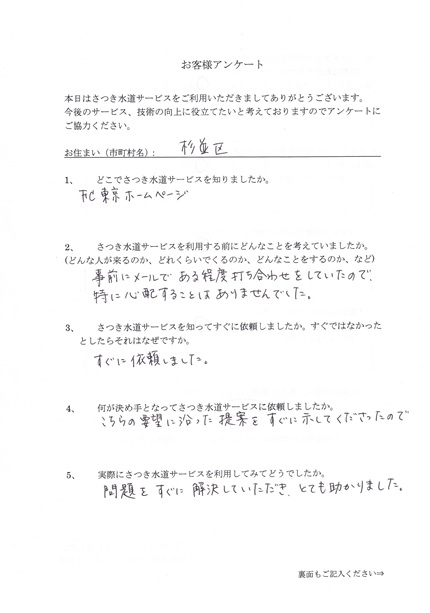 お客様アンケート
本日はさつき水道サービスをご利用いただきましてありがとうございます。
今後のサービス、技術の向上に役立てたいと考えておりますのでアンケートに
ご協力ください。
お住まい（市町村名）： 杉並区
1、 どこでさつき水道サービスを知りましたか。
FC東京ホームページ
2、 さつき水道サービスを利用する前にどんなことを考えていましたか。
(どんな人が来るのか、どれくらいでくるのか、どんなことをするのか、など)
事前にメールである程度打ち合わせをしていたので、
特に心配することはありませんでした。
3、 さつき水道サービスを知ってすぐに依頼しましたか。すぐではなかった
としたらそれはなぜですか。
すぐに依頼しました。
4、 何が決め手となってさつき水道サービスに依頼しましたか。
こちらの要望に沿った提案をすぐに示してくださったので
5、 実際にさつき水道サービスを利用してみてどうでしたか。
問題をすぐに解決していただき、とても助かりました。
裏面もご記入ください⇒